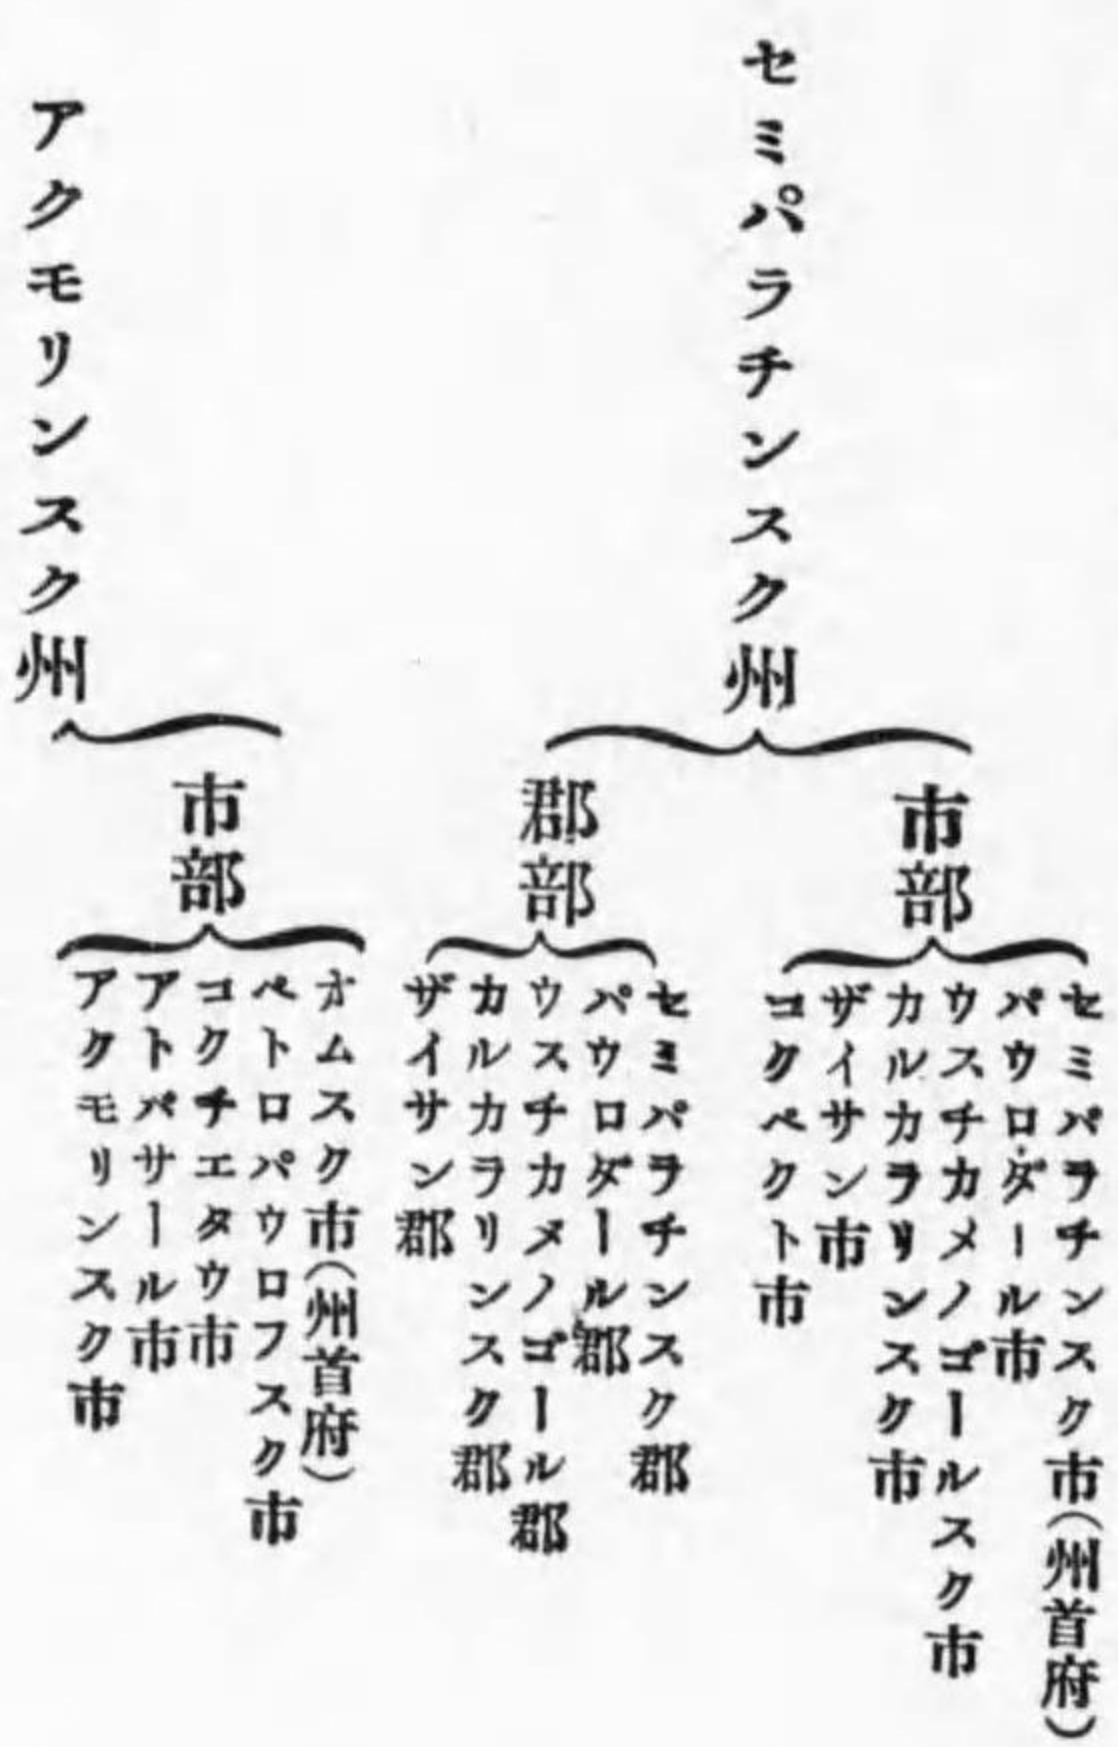 セミパラチンスク州
市部
セミパラチンスク市(州首府)
パウロダール市
ウスチカメノゴールスク市
カルカラリンスク市
ザイサン市
コクペクト市
郡部
セミパラチンスク郡
パウロダール郡
ウスチカメノゴール郡
カルカラリンスク郡
ザイサン郡
アクモリンスク州
市部
オムスク市(州首府)
ペトロパウロフスク市
コクチエタウ市
アトバサール市
アクモリンスク市